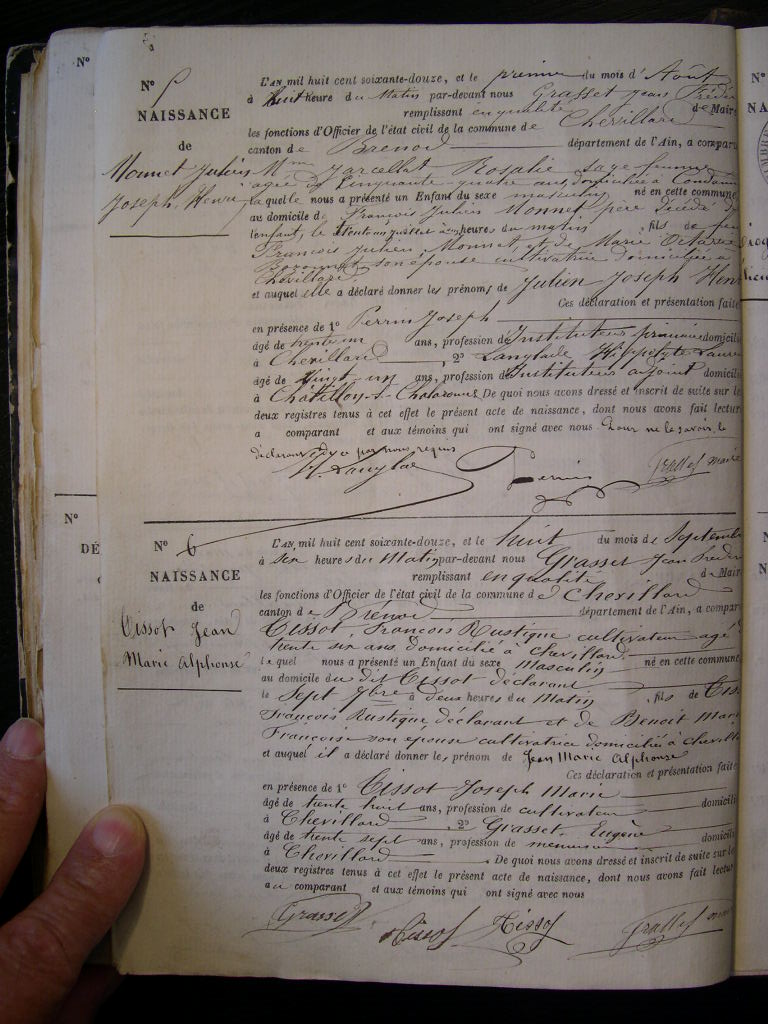 N°
N° 5
NAISSANCE
de
Monnet Julien
Joseph Henri
L'AN mil huit cent soixante-douze, et le premier du mois d'Août
à huit heure du Matin par-devant nous Grasset Jean Frédé
remplissant en qualité de Maire
les fonctions d'Officier de l'état civil de la commune de Chevillard
canton de Brenod département de l'Ain, a comparu
Mme Marcellet Rosalie sage femme
agée de Cinquante quatre ans, domiciliée à Condam
laquelle nous a présenté un Enfant du sexe masculin né en cette commune
au domicile de François Julien Monnet père décédé de
l'enfant, le trente un juillet à onze heures du matin, fils de feu
François Julien Monnet et de Marie Octavie
son épouse cultivatrice domiciliée à
Chevillard
et auquel elle a déclaré donner les prénoms de Julien Joseph Henri
Ces déclaration et présentation faite
en présence de 1° Perrin Joseph
âgé de trente un ans, profession d'Instituteur primaire domicili
à Chevillard, 2° Langlade Hippolyte Laure
âgé de Vingt un ans, profession d'Instituteur adjoint domicili
à Châtillon-s-Chalaronne De quoi nous avons dressé et inscrit de suite sur le
deux registres tenus à cet effet le présent acte de naissance, dont nous avons fait lectur
a comparant et aux témoins qui ont signé avec nous Pour ne le savoir, le
déclarant de ce par nous requis
H. Langlade Perrin Grasset maire
N°
DÉ
N° 6
NAISSANCE
de
Tissot Jean
Marie Alphonse
L'AN mil huit cent soixante-douze, et le huit du mois de Septemb
à six heures du Matin par-devant nous Grasset Jean Frédér
remplissant en qualité de Mair
les fonctions d'Officier de l'état civil de la commune de Chevillard
canton de Brénod département de l'Ain, a compar
Tissot, François Rustique cultivateur agé
trente six ans, domicilié à Chevillard,
lequel nous a présenté un Enfant du sexe Masculin né en cette commune
au domicile du dit Tissot déclarant
le Sept 7bre à deux heures du Matin, fils de Tiss
François Rustique, déclarant et de Benoit Mari
Françoise son épouse cultivatrice domiciliés à chevill
et auquel il a déclaré donner les prénom de Jean Marie Alphonse
Ces déclaration et présentation faite
en présence de 1° Tissot Joseph Marie
âgé de trente huit ans, profession de cultivateur domicili
à Chevillard, 2° Grasset Eugène
âgé de trente sept ans, profession de menuisier domicili
à Chevillard. De quoi nous avons dressé et inscrit de suite sur le
deux registres tenus à cet effet le présent acte de naissance, dont nous avons fait lectur
au comparant et aux témoins qui ont signé avec nous
Grasset Tissot Tissot Grasset maire